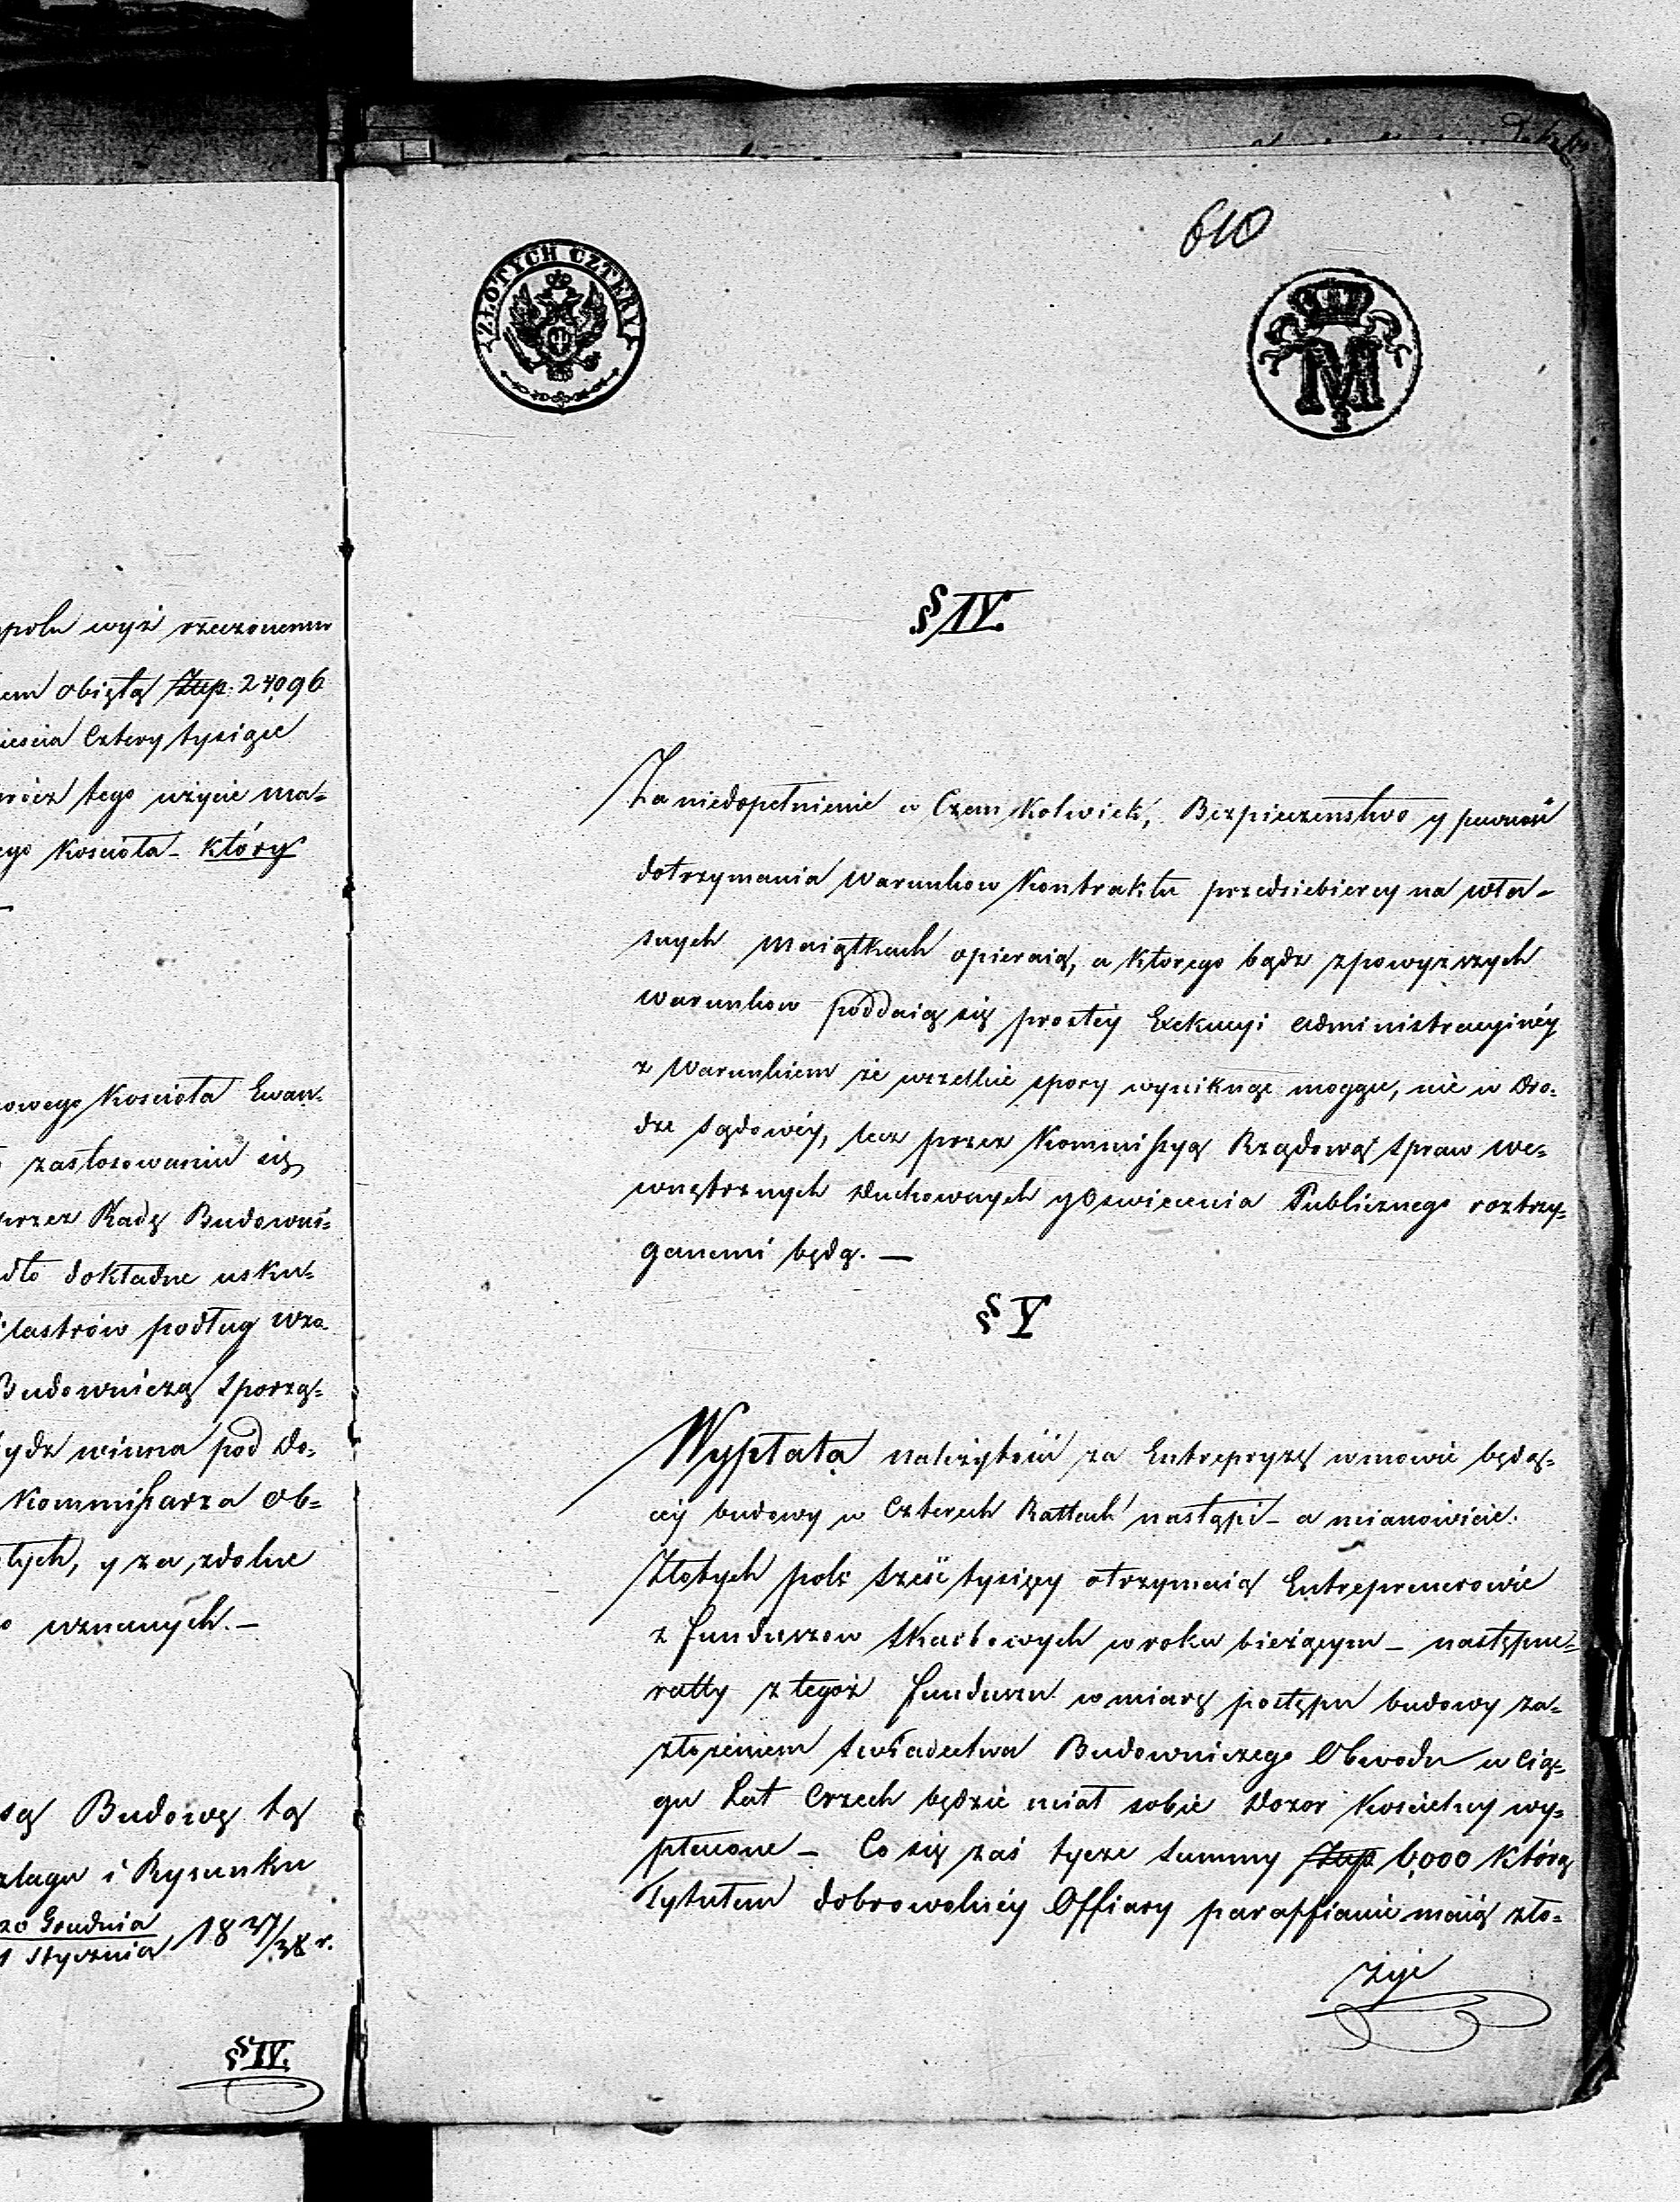 polu wyż rzeczonemu
em obiętą Złp. 24096
ieścia Cztery tysiące
prócz tego użycie ma=
ego Kościoła - który
nowego Kościoła Ewan.
zastosowaniu się
przez Radę Budowni=
dło dokładne usku=
Pilastrów podług wzo
Budowniczą sporzą=
bydz winna pod do=
Kommissarza Ob=
tych, y za zdolne
o uznanych. —
są Budowę tą
szlagu i Rysunku
20 Grudnia
1 Stycznia 1837/38 r.
§ IV.
610
ZŁOTYCH CZTERY
M
§ IV.
Za niedopełnienie w Czem kolwiek, Bezpieczenstwo y pewność
dotrzymania Warunkow Kontraktu przedsiebiercy na wła-
snych Maiątkach opieraią, a ktorego bądz zpowyższych
warunkow poddaią się prostéy Exekucyi administracyinéy
z Warunkiem że wszelkie spory wyniknąć mogące, nie w Dro=
dze sądowéy, lecz przez Kommissyą Rządową spraw We=
wnętrznych Duchownych y Oswiecenia Publicznego roztrzy=
ganemi będą. —
§ V
Wypłata należytości za Entrepryzę w mowie będą=
céy budowy w Czterech Rattach nastąpi - a mianowicie.
Złotych pols: sześć tysięcy otrzymaią Entreprenerowie
z funduszow skarbowych w roku bieżącym - następne=
ratty z tegoż funduszu w miarę postępu budowy za=
złożeniem świadectwa Budowniczego Obwodu w Cią=
gu Lat Trzech będzie miał sobie Dozor Kościelny wy=
płacone - Co się zaś tycze summy Złp. 6,000 którą
Tytułem dobrowolnéy Offiary paraffianie maią zło=
żyć